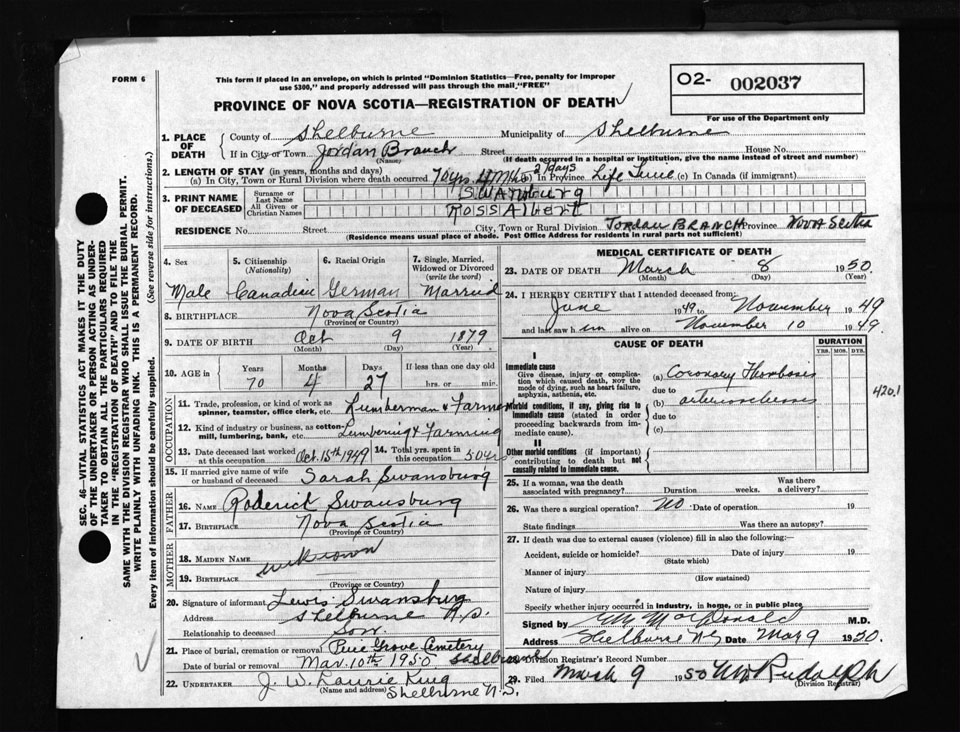 FORM 6
This form if placed in an envelope, on which is printed "Dominion Statistics—Free, penalty for improper
use $300," and properly addressed will pass through the mail "FREE"
O2- 002037
For use of the Department only
PROVINCE OF NOVA SCOTIA—REGISTRATION OF DEATH
1. PLACE OF DEATH
County of Shelburne Municipality of Shelburne
If in City or Town Jordan Branch Street House No.
(Name) (If death occurred in a hospital or institution, give the name instead of street and number)
2. LENGTH OF STAY (in years, months and days)
(a) In City, Town or Rural Division where death occurred 70yrs. 4 Mths 27days (b) In Province Life Time (c) In Canada (if immigrant)
3. PRINT NAME OF DECEASED
Surname or Last Name SWANSBURG
All Given or Christian Names ROSS Albert
RESIDENCE No. Street City, Town or Rural Division JORDAN BRANCH Province NOVA Scotia
(Residence means usual place of abode. Post Office Address for residents in rural parts not sufficient)
4. Sex
Male
5. Citizenship (Nationality)
Canadian
6. Racial Origin
German
7. Single, Married, Widowed or Divorced (write the word)
Married
8. BIRTHPLACE Nova Scotia
(Province or Country)
9. DATE OF BIRTH Oct 9 1879
(Month) (Day) (Year)
10. AGE in Years Months Days If less than one day old
70 4 27 hrs. or min.
OCCUPATION
11. Trade, profession or kind of work as spinner, teamster, office clerk, etc. Lumberman & Farmer
12. Kind of industry or business, as cotton-mill, lumbering, bank, etc. Lumbering & Farming
13. Date deceased last worked at this occupation Oct. 15th 1949 14. Total yrs. spent in this occupation 50yrs
15. If married give name of wife or husband of deceased Sarah Swansburg
FATHER
16. NAME Roderick Swansburg
17. BIRTHPLACE Nova Scotia
(Province or Country)
MOTHER
18. MAIDEN NAME unknown
19. BIRTHPLACE
(Province or Country)
20. Signature of informant Lewis Swansburg
Address Shelburne N.S.
Relationship to deceased Son
21. Place of burial, cremation or removal Pine Grove Cemetery
Date of burial or removal Mar. 10th 1950 Shelburne
22. UNDERTAKER J. W. Laurie King
(Name and address) Shelburne N.S.
MEDICAL CERTIFICATE OF DEATH
23. DATE OF DEATH March 8 1950.
(Month) (Day)
24. I HEREBY CERTIFY that I attended deceased from:
June 1949 to November 1949
and last saw him alive on November 10 1949.
CAUSE OF DEATH
DURATION
YRS. MOS. DYS.
I
Immediate cause
Give disease, injury or complication which caused death, NOT the mode of dying, such as heart failure, asphyxia, asthenia, etc.
(a) Coronary Thombosis
due to
Morbid conditions, if any, giving rise to immediate cause (stated in order proceeding backwards from immediate cause).
(b) arteriosclerosis
due to
(c)
420.1
II
Other morbid conditions (if important) contributing to death but not causally related to immediate cause.
25. If a woman, was the death associated with pregnancy? Duration weeks. Was there a delivery?
26. Was there a surgical operation? No Date of operation 19
State findings Was there an autopsy?
27. If death was due to external causes (violence) fill in also the following:—
Accident, suicide or homicide? Date of injury 19
(State which)
Manner of injury
(How sustained)
Nature of injury
Specify whether injury occurred in industry, in home, or in public place
Signed by MacDonald M.D.
Address Shelburne NS Date Mar 9 1950.
28. Division Registrar's Record Number
29. Filed March 9 1950 Rudolph
(Division Registrar)
SEC. 46—VITAL STATISTICS ACT MAKES IT THE DUTY
OF THE UNDERTAKER OR PERSON ACTING AS UNDER-
TAKER TO OBTAIN ALL THE PARTICULARS REQUIRED
IN THE "REGISTRATION OF DEATH" AND TO FILE THE
SAME WITH THE DIVISION REGISTRAR WHO SHALL ISSUE THE BURIAL PERMIT.
WRITE PLAINLY WITH UNFADING INK. THIS IS A PERMANENT RECORD.
Every item of information should be carefully supplied. (See reverse side for instructions.)